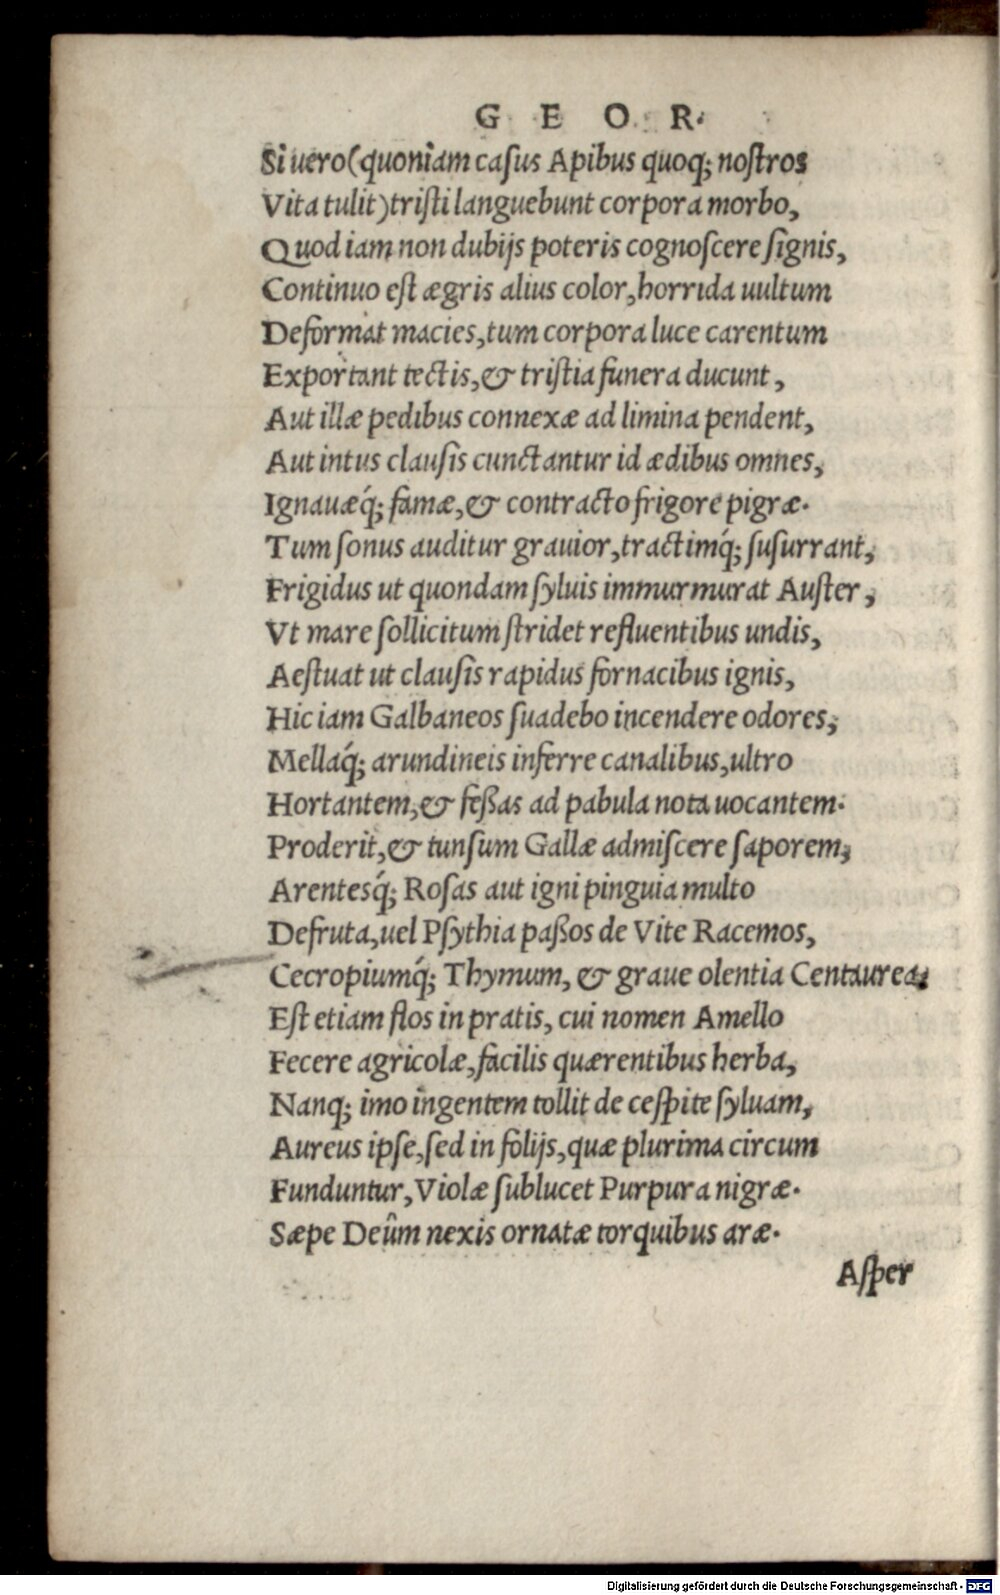 G E O R.
Si uero (quoniam casus Apibus quoq; nostros
Vita tulit) tristi languebunt corpora morbo,
Quod iam non dubijs poteris cognoscere signis,
Continuo est ægris alius color, horrida uultum
Deformat macies, tum corpora luce carentum
Exportant tectis, & tristia funera ducunt,
Aut illæ pedibus connexæ ad limina pendent,
Aut intus clausis cunctantur id ædibus omnes,
Ignauæq́; famæ, & contracto frigore pigræ.
Tum sonus auditur grauior, tractimq́; susurrant,
Frigidus ut quondam syluis immurmurat Auster,
Vt mare sollicitum stridet refluentibus undis,
Aestuat ut clausis rapidus fornacibus ignis,
Hic iam Galbaneos suadebo incendere odores,
Mellaq́; arundineis inferre canalibus, ultro
Hortantem, & feßas ad pabula nota uocantem.
Proderit, & tunsum Gallæ admiscere saporem,
Arentesq́; Rosas aut igni pinguia multo
Defruta, uel Psythia paßos de Vite Racemos,
Cecropiumq́; Thymum, & graue olentia Centaurea.
Est etiam flos in pratis, cui nomen Amello
Fecere agricolæ, facilis quærentibus herba,
Nanq; imo ingentem tollit de cespite syluam,
Aureus ipse, sed in folijs, quæ plurima circum
Funduntur, Violæ sublucet Purpura nigræ.
Sæpe Deûm nexis ornatæ torquibus aræ.
Asper
Digitalisierung gefördert durch die Deutsche Forschungsgemeinschaft - DFG